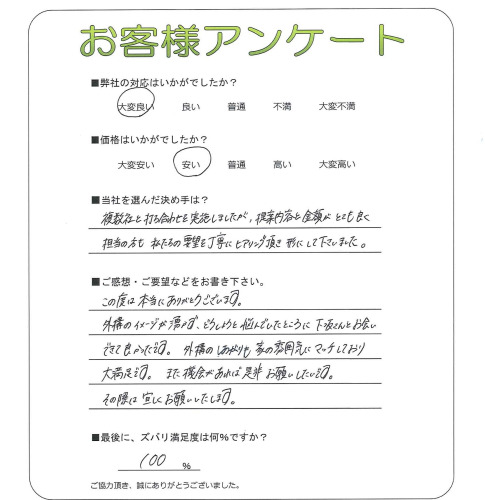 お客様アンケート
■弊社の対応はいかがでしたか?
大変良い 良い 普通 不満 大変不満
■価格はいかがでしたか?
大変安い 安い 普通 高い 大変高い
■当社を選んだ決め手は?
複数社と打ち合わせを実施しましたが、提案内容と金額がとても良く
担当の方も私たちの要望を丁寧にヒアリング頂き形にして下さいました。
■ご感想・ご要望などをお書き下さい。
この度は本当にありがとうございます。
外構のイメージが湧かず、どうしようと悩んでいたところに下坂さんとお会い
できて良かったです。外構のしあがりも家の雰囲気にマッチしており
大満足です。また機会があれば是非お願いしたいです。
その際は宜しくお願いいたします。
■最後に、ズバリ満足度は何%ですか?
100 %
ご協力頂き、誠にありがとうございました。